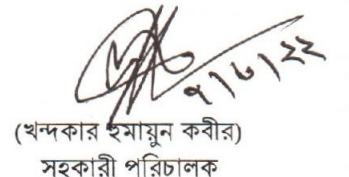 ৭/৮/২২
(খন্দকার হুমায়ুন কবীর)
সহকারী পরিচালক